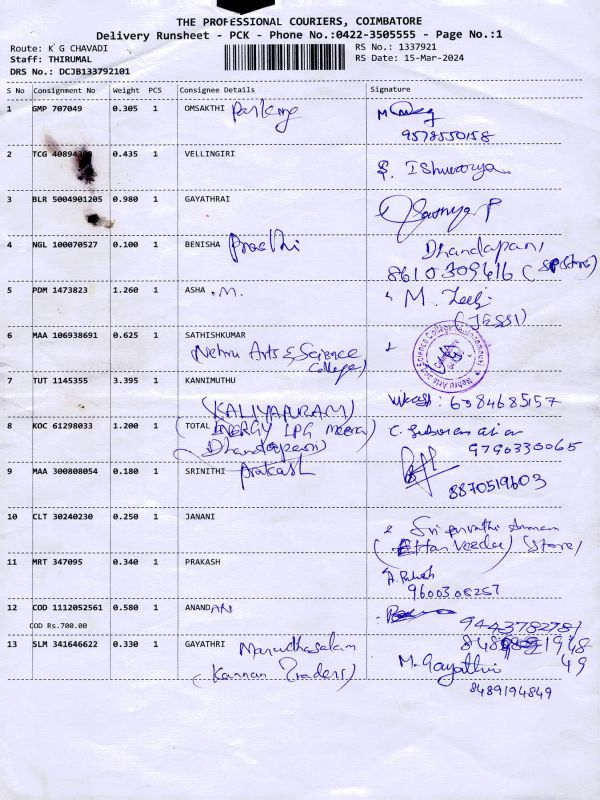 THE PROFESSIONAL COURIERS, COIMBATORE
Delivery Runsheet - PCK - Phone No.:0422-3505555 - Page No.:1
Route: K G CHAVADI RS No.: 1337921
Staff: THIRUMAL RS Date: 15-Mar-2024
DRS No.: DCJB133792101
S No Consignment No Weight PCS Consignee Details Signature
1 GMP 707049 0.305 1 OMSAKTHI
9578550158
2 TCG 40894 0.435 1 VELLINGIRI
S. IShwarya
3 BLR 5004901205 0.980 1 GAYATHRAI
Sowmya P
4 NGL 100070527 0.100 1 BENISHA Preethi Dhandapani
8610309616 (SP Store)
5 PDM 1473823 1.260 1 ASHA .M. M.
(JESSI)
6 MAA 106938691 0.625 1 SATHISHKUMAR
Nehru Arts & Science
College)
Nehru Arts and Science College (Autonomous)
7 TUT 1145355 3.395 1 KANNIMUTHU
(KALIYAPURAM) Vikash: 6384685157
8 KOC 61298033 1.200 1 TOTAL ENERGY LPG Meera) C. Subramanian
(Dhandapani) 9790330065
9 MAA 300808054 0.180 1 SRINITHI Prakash
8870519603
10 CLT 30240230 0.250 1 JANANI Sri parvathi amman
(Store)
11 MRT 347095 0.340 1 PRAKASH
9600308257
12 COD 1112052561 0.580 1 ANAND AN
COD Rs.700.00 9443782781
13 SLM 341646622 0.330 1 GAYATHRI Marudhasalam
(Kannan Traders) M. Gayathri 49
8489194849